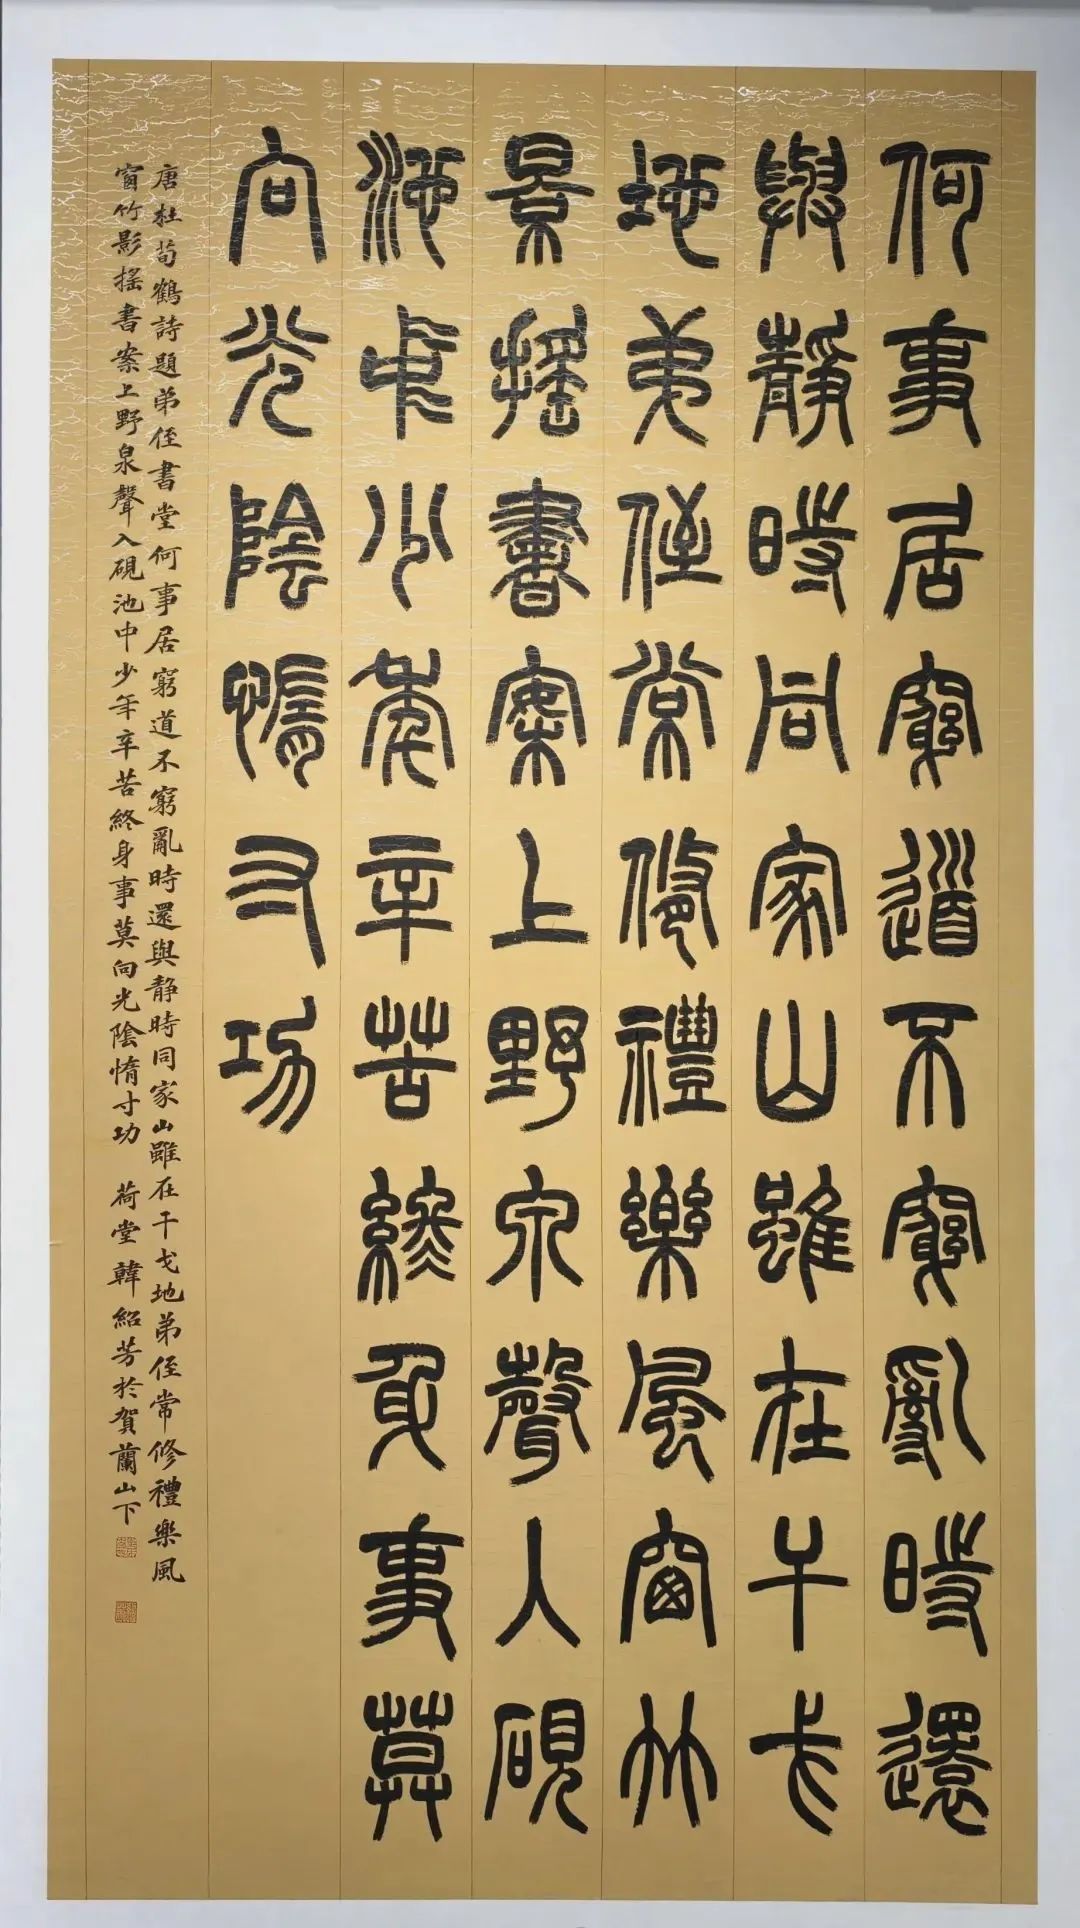 何事居窮道不窮亂時還
與靜時同家山雖在干戈
地弟侄常修禮樂風窗竹
景搖書案上野泉聲入硯
池中少年辛苦終身事莫
向光陰惰寸功
唐杜荀鶴詩題弟侄書堂何事居窮道不窮亂時還與靜時同家山雖在干戈地弟侄常修禮樂風
窗竹影搖書案上野泉聲入硯池中少年辛苦終身事莫向光陰惰寸功 荷堂韓紹芳於賀蘭山下